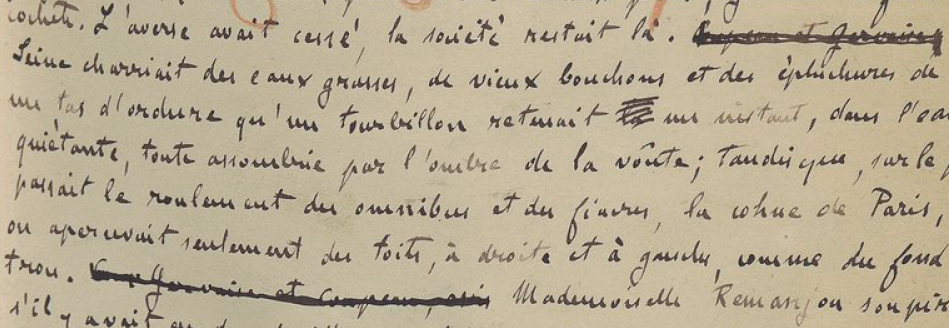 cochete. L'averse avait cessé, la société restait là. Coupeau et Gervaise
Seine charriait des eaux grasses, de vieux bouchons et des épluchures de
un tas d'ordure qu'un tourbillon retenait un instant, dans l'eau
quiétante, toute assombrie par l'ombre de la voûte; tandis que, sur le
passait le roulement des omnibus et des fiacres, la cohue de Paris,
on apercevait seulement des toits, à droite et à gauche, comme du fond
trou. Gervaise et Coupeau, assis Mademoiselle Remanjou soupira
s'il y avait